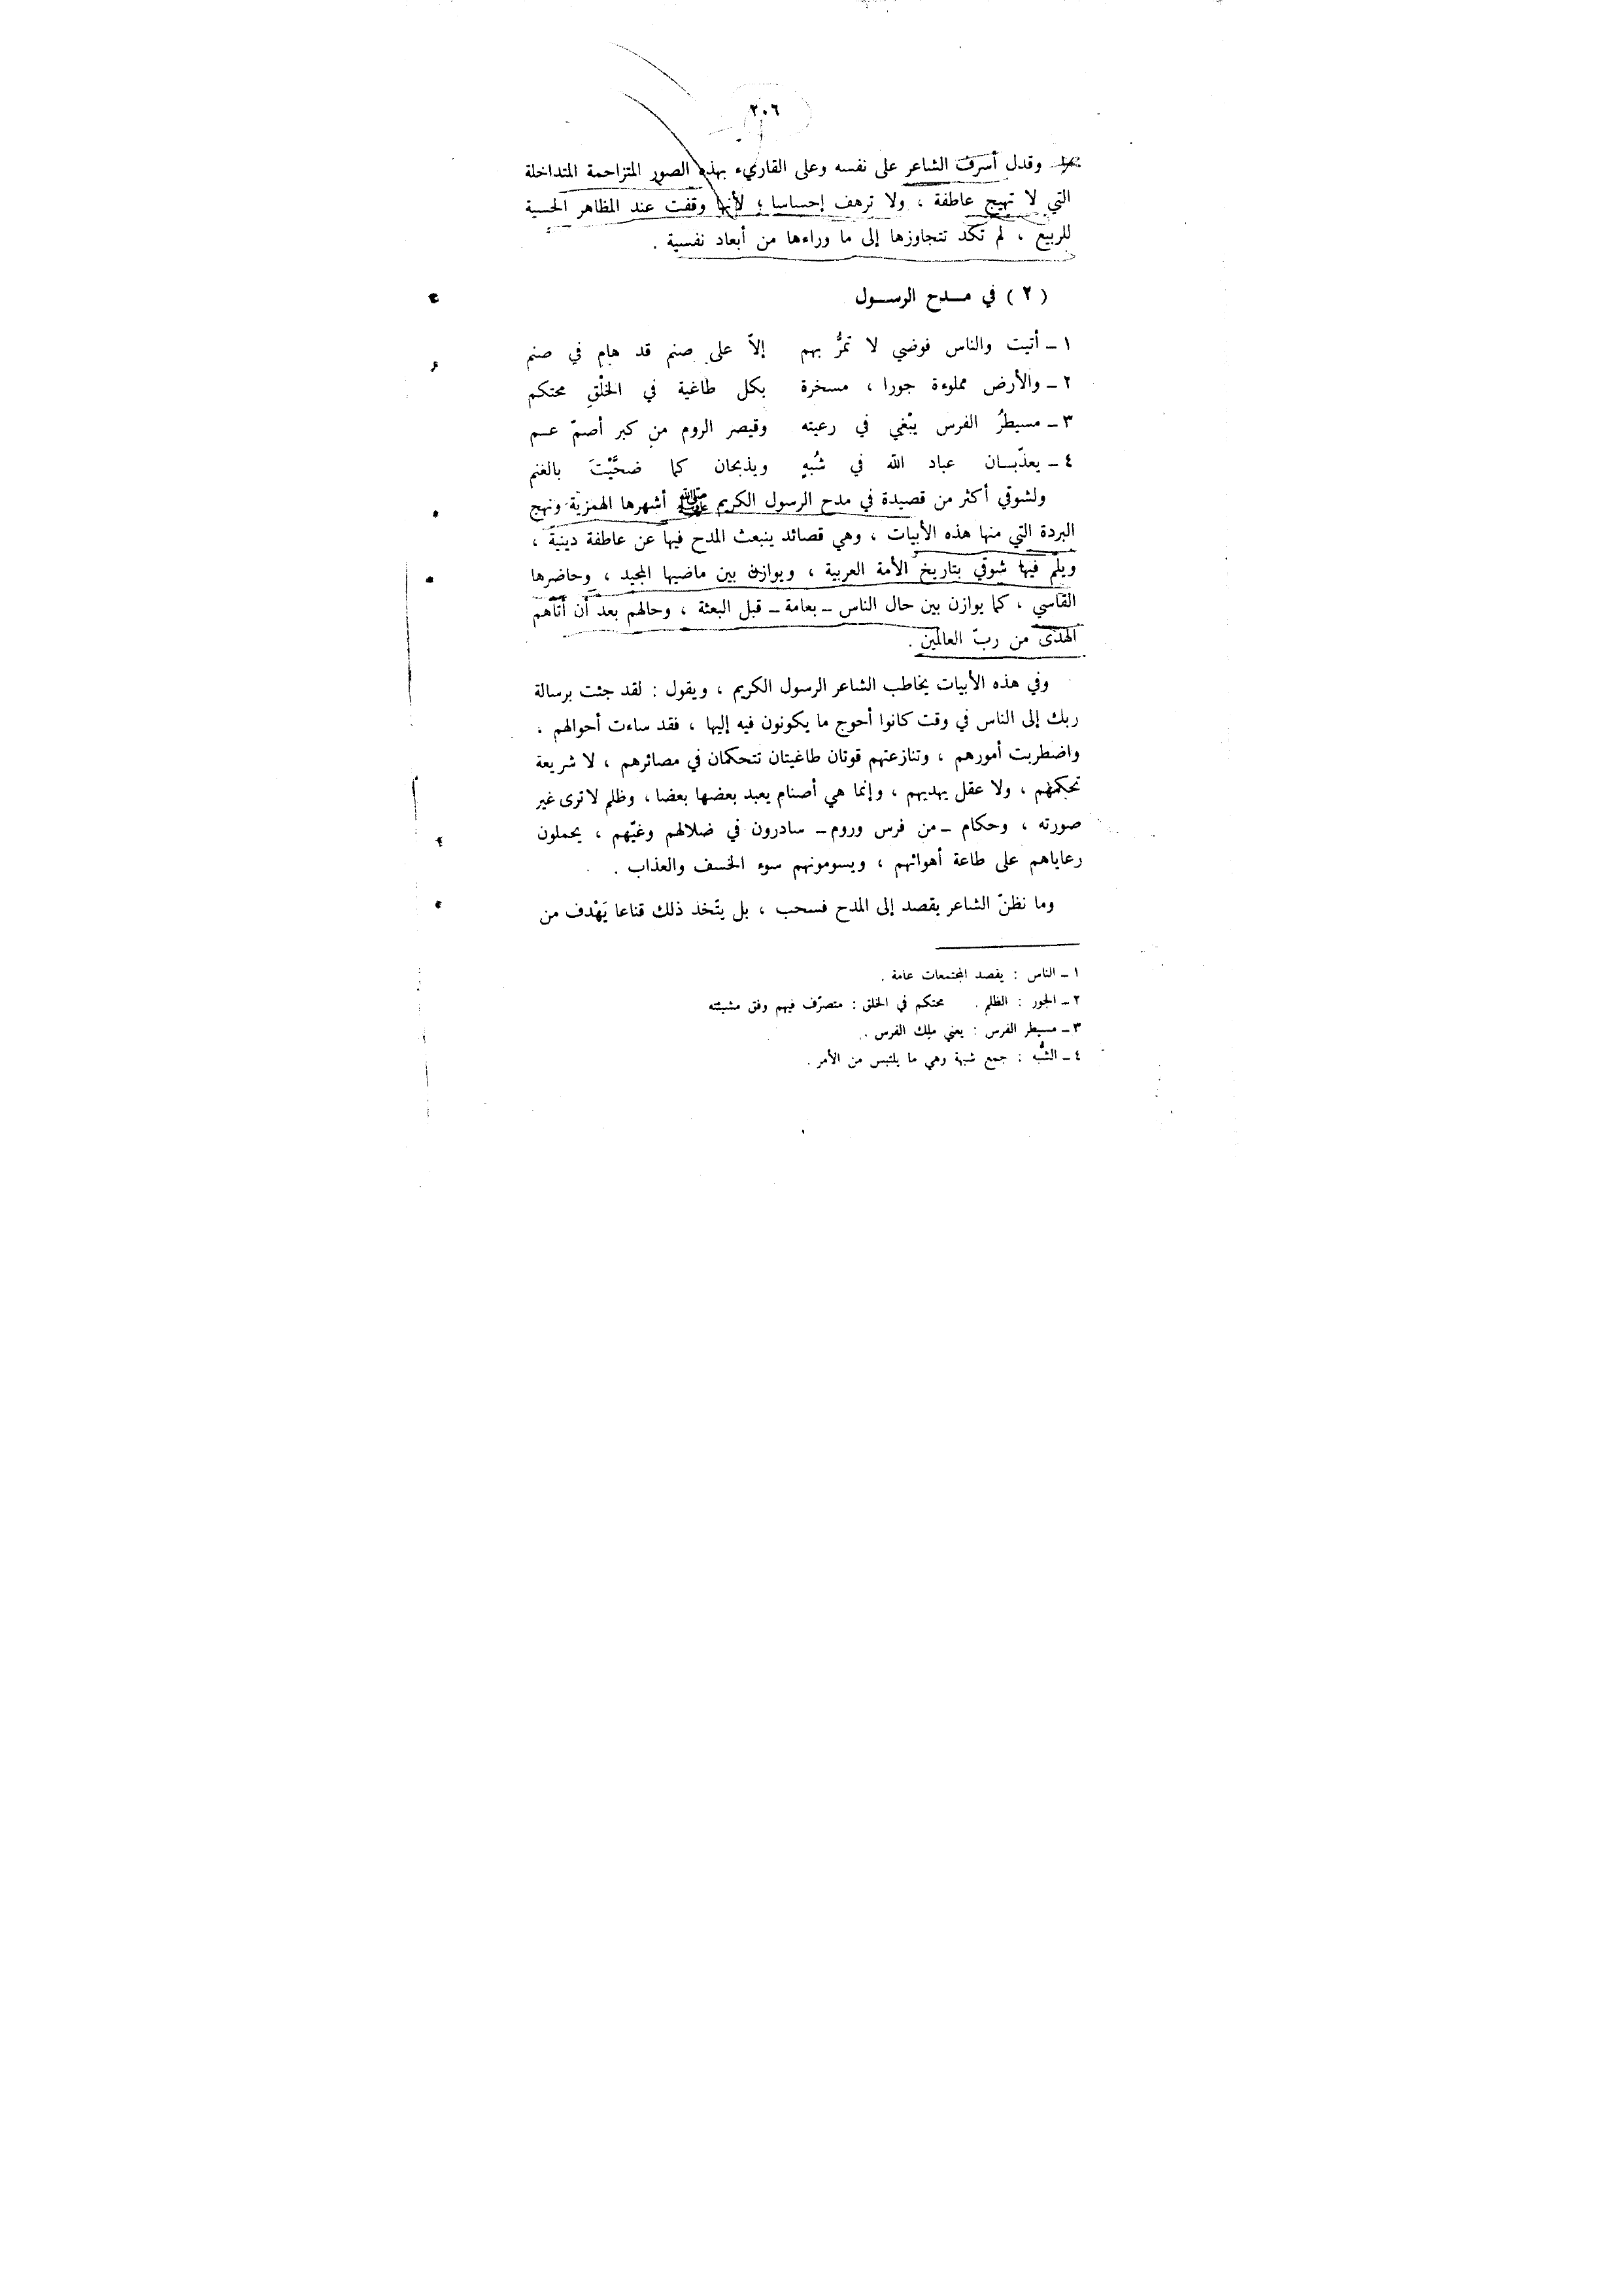 ٢٠٦
وقدل أسرف الشاعر على نفسه وعلى القاريء بهذه الصور المتزاحمة المتداخلة
التي لا تهيج عاطفة ، ولا ترهف إحساسا ؛ لأنها وقفت عند المظاهر الحسية
للربيع ، لم تكد تتجاوزها إلى ما وراءها من أبعاد نفسية .
( ٢ ) في مـدح الرسـول
١ ـ أتيت والناس فوضي لا تمرُّ بهم إلاّ على صنم قد هام في صنم
٢ ـ والأرض مملوءة جورا ، مسخرة بكل طاغية في الخلْقِ محتكم
٣ ـ مسيطرُ الفرس يبْغي في رعيته وقيصر الروم من كبر أصمّ عـم
٤ ـ يعذّبـان عباد الله في شُبهٍ ويذبحان كما ضحَّيْتَ بالغنم
ولشوقي أكثر من قصيدة في مدح الرسول الكريم ﷺ أشهرها الهمزية ونهج
البردة التي منها هذه الأبيات ، وهي قصائد ينبعث المدح فيها عن عاطفة دينية ،
ويلمّ فيها شوقي بتاريخ الأمة العربية ، ويوازن بين ماضيها المجيد ، وحاضرها
القاسي ، كما يوازن بين حال الناس ـ بعامة ـ قبل البعثة ، وحالهم بعد أن أتاهم
الهدى من ربّ العالمين .
وفي هذه الأبيات يخاطب الشاعر الرسول الكريم ، ويقول : لقد جئت برسالة
ربك إلى الناس في وقت كانوا أحوج ما يكونون فيه إليها ، فقد ساءت أحوالهم ،
واضطربت أمورهم ، وتنازعتهم قوتان طاغيتان تتحكمان في مصائرهم ، لا شريعة
تحكمهم ، ولا عقل يهديهم ، وإنما هي أصنام يعبد بعضها بعضا ، وظلم لا ترى غير
صورته ، وحكام ـ من فرس وروم ـ سادرون في ضلالهم وغيّهم ، يحملون
رعاياهم على طاعة أهوائهم ، ويسومونهم سوء الخسف والعذاب .
وما نظنّ الشاعر يقصد إلى المدح فسحب ، بل يتّخذ ذلك قناعا يَهْدف من
١ ـ الناس : يقصد المجتمعات عامة .
٢ ـ الجور : الظلم . محتكم في الخلق : متصرّف فيهم وفق مشيئته
٣ ـ مسيطر الفرس : يعني ملك الفرس .
٤ ـ الشُّبه : جمع شبهة وهي ما يلتبس من الأمر .